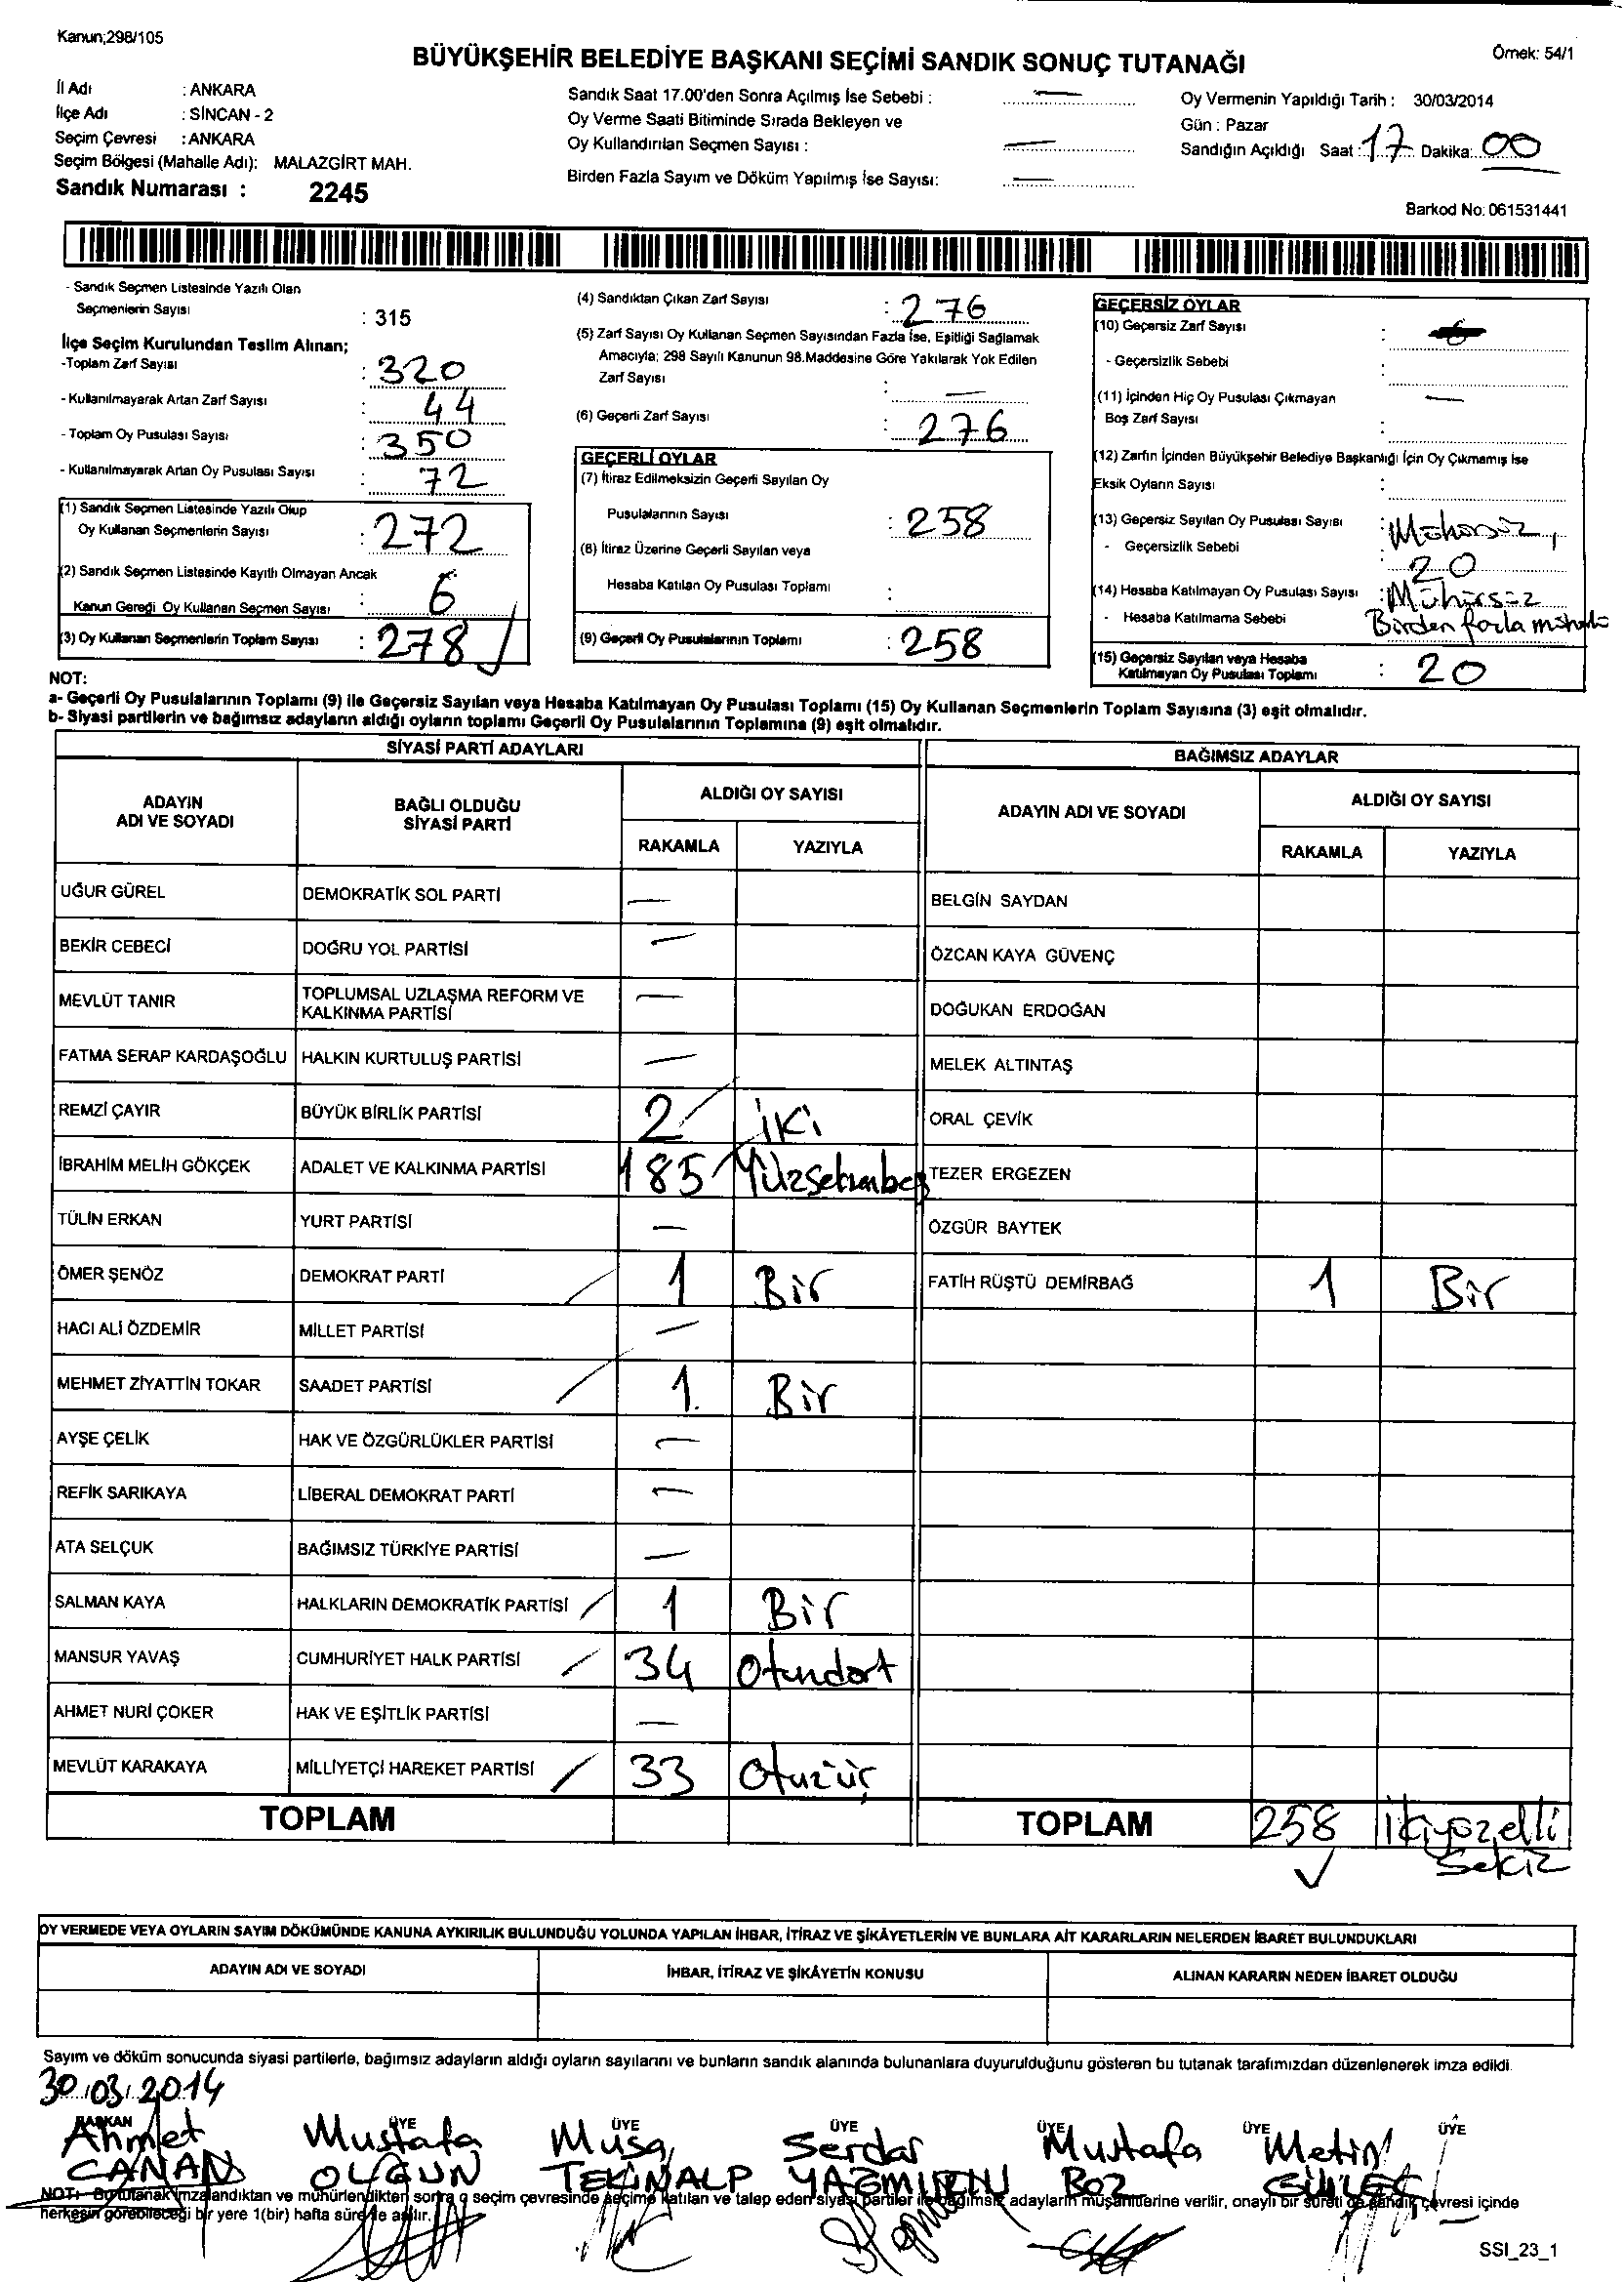 Kanun;298/105
BÜYÜKŞEHİR BELEDİYE BAŞKANI SEÇİMİ SANDIK SONUÇ TUTANAĞI
Örnek: 54/1
İl Adı : ANKARA
İlçe Adı : SİNCAN - 2
Seçim Çevresi : ANKARA
Seçim Bölgesi (Mahalle Adı): MALAZGİRT MAH.
Sandık Numarası : 2245
Sandık Saat 17.00'den Sonra Açılmış İse Sebebi : —
Oy Verme Saati Bitiminde Sırada Bekleyen ve
Oy Kullandırılan Seçmen Sayısı : —
Birden Fazla Sayım ve Döküm Yapılmış İse Sayısı: —
Oy Vermenin Yapıldığı Tarih : 30/03/2014
Gün : Pazar
Sandığın Açıldığı Saat : 17 Dakika: 00
Barkod No: 061531441
- Sandık Seçmen Listesinde Yazılı Olan
Seçmenlerin Sayısı : 315
İlçe Seçim Kurulundan Teslim Alınan;
-Toplam Zarf Sayısı : 320
- Kullanılmayarak Artan Zarf Sayısı : 44
- Toplam Oy Pusulası Sayısı : 350
- Kullanılmayarak Artan Oy Pusulası Sayısı : 72
(1) Sandık Seçmen Listesinde Yazılı Olup
Oy Kullanan Seçmenlerin Sayısı : 272
(2) Sandık Seçmen Listesinde Kayıtlı Olmayan Ancak
Kanun Gereği Oy Kullanan Seçmen Sayısı : 6
(3) Oy Kullanan Seçmenlerin Toplam Sayısı : 278
(4) Sandıktan Çıkan Zarf Sayısı : 276
(5) Zarf Sayısı Oy Kullanan Seçmen Sayısından Fazla İse, Eşitliği Sağlamak
Amacıyla; 298 Sayılı Kanunun 98.Maddesine Göre Yakılarak Yok Edilen
Zarf Sayısı : —
(6) Geçerli Zarf Sayısı : 276
GEÇERLİ OYLAR
(7) İtiraz Edilmeksizin Geçerli Sayılan Oy
Pusulalarının Sayısı : 258
(8) İtiraz Üzerine Geçerli Sayılan veya
Hesaba Katılan Oy Pusulası Toplamı :
(9) Geçerli Oy Pusulalarının Toplamı : 258
GEÇERSİZ OYLAR
(10) Geçersiz Zarf Sayısı :
- Geçersizlik Sebebi :
(11) İçinden Hiç Oy Pusulası Çıkmayan —
Boş Zarf Sayısı :
(12) Zarfın İçinden Büyükşehir Belediye Başkanlığı İçin Oy Çıkmamış İse
Eksik Oyların Sayısı :
(13) Geçersiz Sayılan Oy Pusulası Sayısı :
- Geçersizlik Sebebi : 20
(14) Hesaba Katılmayan Oy Pusulası Sayısı : Mühürsüz
- Hesaba Katılmama Sebebi Birden fazla mühürlü
(15) Geçersiz Sayılan veya Hesaba
Katılmayan Oy Pusulası Toplamı : 20
NOT:
a- Geçerli Oy Pusulalarının Toplamı (9) ile Geçersiz Sayılan veya Hesaba Katılmayan Oy Pusulası Toplamı (15) Oy Kullanan Seçmenlerin Toplam Sayısına (3) eşit olmalıdır.
b- Siyasi partilerin ve bağımsız adayların aldığı oyların toplamı Geçerli Oy Pusulalarının Toplamına (9) eşit olmalıdır.
SİYASİ PARTİ ADAYLARI
ADAYIN ADI VE SOYADI BAĞLI OLDUĞU SİYASİ PARTİ ALDIĞI OY SAYISI
RAKAMLA YAZIYLA
UĞUR GÜREL DEMOKRATİK SOL PARTİ —
BEKİR CEBECİ DOĞRU YOL PARTİSİ —
MEVLÜT TANIR TOPLUMSAL UZLAŞMA REFORM VE KALKINMA PARTİSİ —
FATMA SERAP KARDAŞOĞLU HALKIN KURTULUŞ PARTİSİ —
REMZİ ÇAYIR BÜYÜK BİRLİK PARTİSİ 2 İki
İBRAHİM MELİH GÖKÇEK ADALET VE KALKINMA PARTİSİ 185 Yüzseksenbeş
TÜLİN ERKAN YURT PARTİSİ —
ÖMER ŞENÖZ DEMOKRAT PARTİ 1 Bir
HACI ALİ ÖZDEMİR MİLLET PARTİSİ —
MEHMET ZİYATTİN TOKAR SAADET PARTİSİ 1 Bir
AYŞE ÇELİK HAK VE ÖZGÜRLÜKLER PARTİSİ —
REFİK SARIKAYA LİBERAL DEMOKRAT PARTİ —
ATA SELÇUK BAĞIMSIZ TÜRKİYE PARTİSİ —
SALMAN KAYA HALKLARIN DEMOKRATİK PARTİSİ 1 Bir
MANSUR YAVAŞ CUMHURİYET HALK PARTİSİ 34 Otuzdört
AHMET NURİ ÇOKER HAK VE EŞİTLİK PARTİSİ —
MEVLÜT KARAKAYA MİLLİYETÇİ HAREKET PARTİSİ 33 Otuzüç
TOPLAM
BAĞIMSIZ ADAYLAR
ADAYIN ADI VE SOYADI ALDIĞI OY SAYISI
RAKAMLA YAZIYLA
BELGİN SAYDAN
ÖZCAN KAYA GÜVENÇ
DOĞUKAN ERDOĞAN
MELEK ALTINTAŞ
ORAL ÇEVİK
TEZER ERGEZEN
ÖZGÜR BAYTEK
FATİH RÜŞTÜ DEMİRBAĞ 1 Bir
TOPLAM 258 İkiyüzelli
sekiz
OY VERMEDE VEYA OYLARIN SAYIM DÖKÜMÜNDE KANUNA AYKIRILIK BULUNDUĞU YOLUNDA YAPILAN İHBAR, İTİRAZ VE ŞİKÂYETLERİN VE BUNLARA AİT KARARLARIN NELERDEN İBARET BULUNDUKLARI
ADAYIN ADI VE SOYADI İHBAR, İTİRAZ VE ŞİKÂYETİN KONUSU ALINAN KARARIN NEDEN İBARET OLDUĞU
Sayım ve döküm sonucunda siyasi partilerle, bağımsız adayların aldığı oyların sayılarını ve bunların sandık alanında bulunanlara duyurulduğunu gösteren bu tutanak tarafımızdan düzenlenerek imza edildi.
30/03/2014
BAŞKAN ÜYE ÜYE ÜYE ÜYE ÜYE ÜYE
Ahmet Mustafa Musa Serdar Mustafa Metin
CANAN OLGUN TEKİNALP BOZ
NOT:- Bu tutanak imzalandıktan ve mühürlendikten sonra o seçim çevresinde seçime katılan ve talep eden siyasi partiler ile bağımsız adayların müşahitlerine verilir, onaylı bir sureti de sandık çevresi içinde
herkesin görebileceği bir yere 1(bir) hafta süre ile asılır.
SSI_23_1